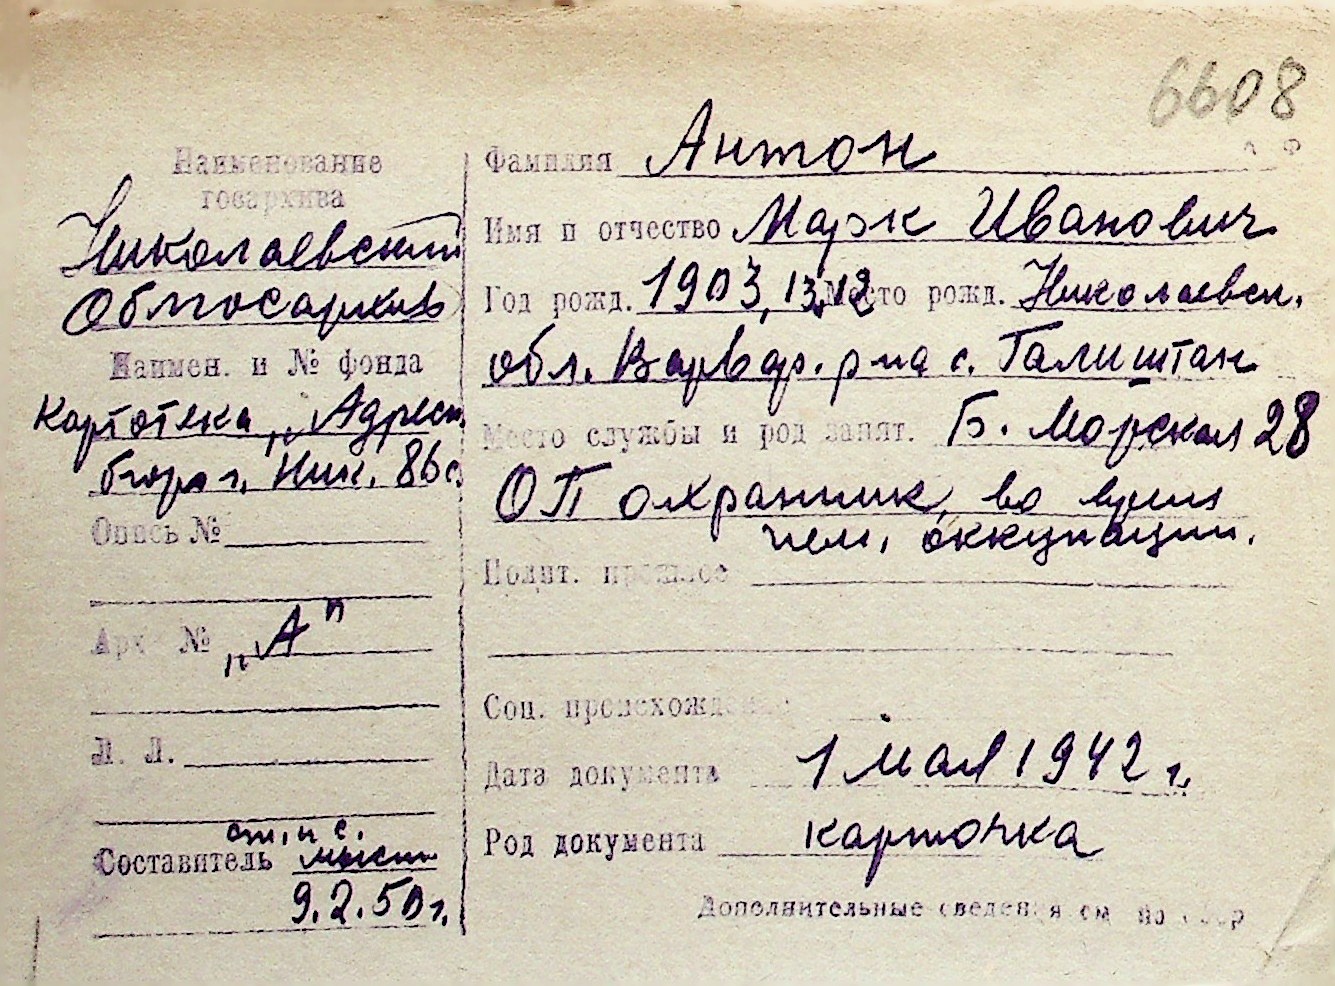 6608
Наименование
госархива
Николаевский
Облгосархив
Наимен. и № фонда
Картотека „Адресн.
бюро г. Ник. 86 с.
Опись №
Арх №
„А"
Л. Л.
ст. н. с.
Составитель
9.2.50 г.
Фамилия Антон
Имя и отчество Марк Иванович
Год рожд. 1903, 13,12 Место рожд. Николаевск.
обл. Варвар. р-на с.
Место службы и род занят. Б. Морская 28
ОП охранник, во время
нем. оккупации.
Полит. прошлое
Соц. происхождение
Дата документа 1 мая 1942 г.
Род документа карточка
Дополнительные сведения см на обор